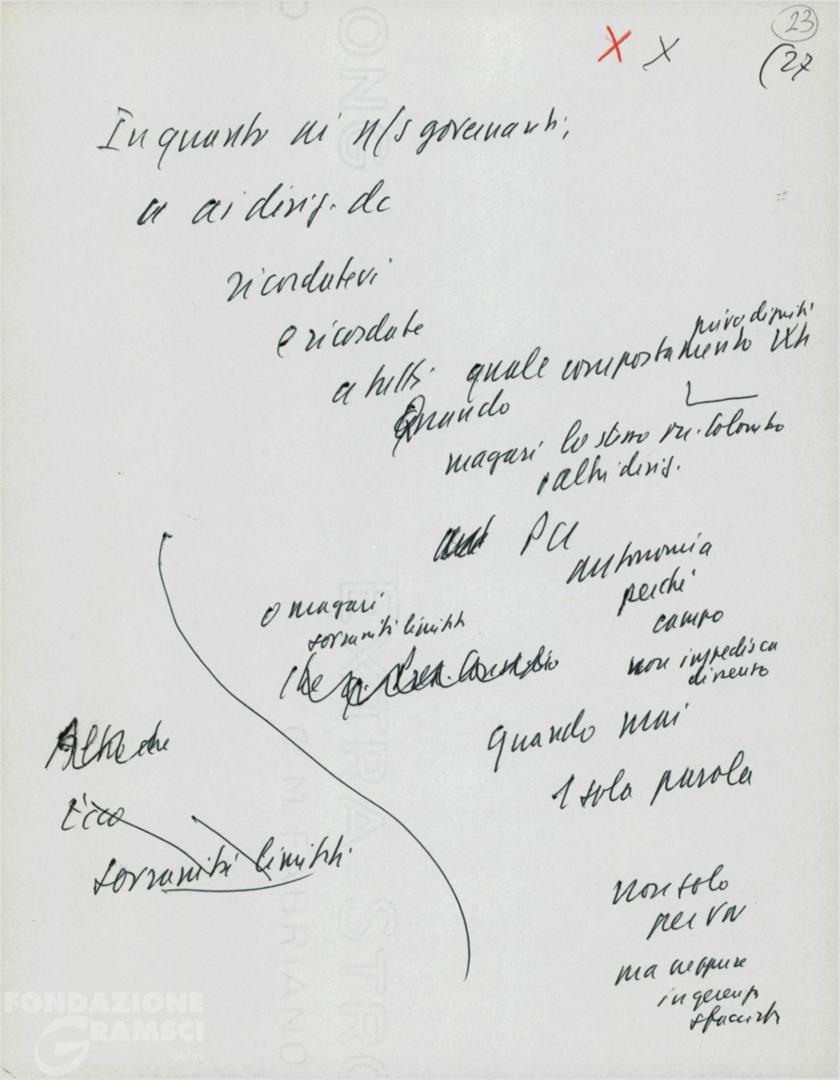 23
X X
(27
In quanto ai n/s governanti,
e ai dirig. dc
ricordatevi
e ricordate
a tutti quale comportamento
privo dignità
Quando
magari lo stesso on. Colombo
e altri dirig.
PCI
autonomia
perché
campo
non impedisca
o magari
sovranità limitata
quando mai
1 sola parola
Altro che
Ecco
sovranità limitata
non solo
per VN
ma neppure
ingerenza
sfacciata
FONDAZIONE
GRAMSCI
onlus
EXTRA STRONG
C.M. FABRIANO